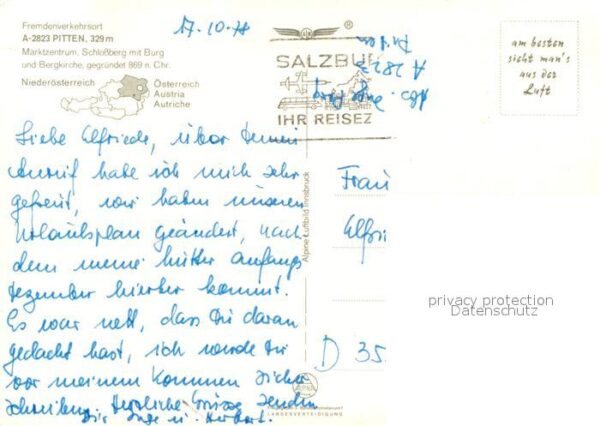 Fremdenverkehrsort
A-2823 PITTEN, 329 m
Marktzentrum, Schloßberg mit Burg
und Bergkirche, gegründet 869 n. Chr.
Niederösterreich
Österreich
Austria
Autriche
17.10.78
SALZBU
IHR REISEZ
A 2823
am besten
sieht man's
aus der
Luft
Liebe Elfriede, über Deinen
Anruf habe ich mich sehr
gefreut, wir haben unseren
Urlaubsplan geändert, nach
dem meine Mutter anfangs
Dezember hierher kommt.
Es war nett, dass Du daran
gedacht hast, ich werde Dir
vor meinem Kommen sicher
schreiben. Herzliche Grüsse senden
Dir Inge u. Herbert.
Alpine Luftbild Innsbruck
Frau
Elfri
D 35
privacy protection
Datenschutz
LANDESVERTEIDIGUNG